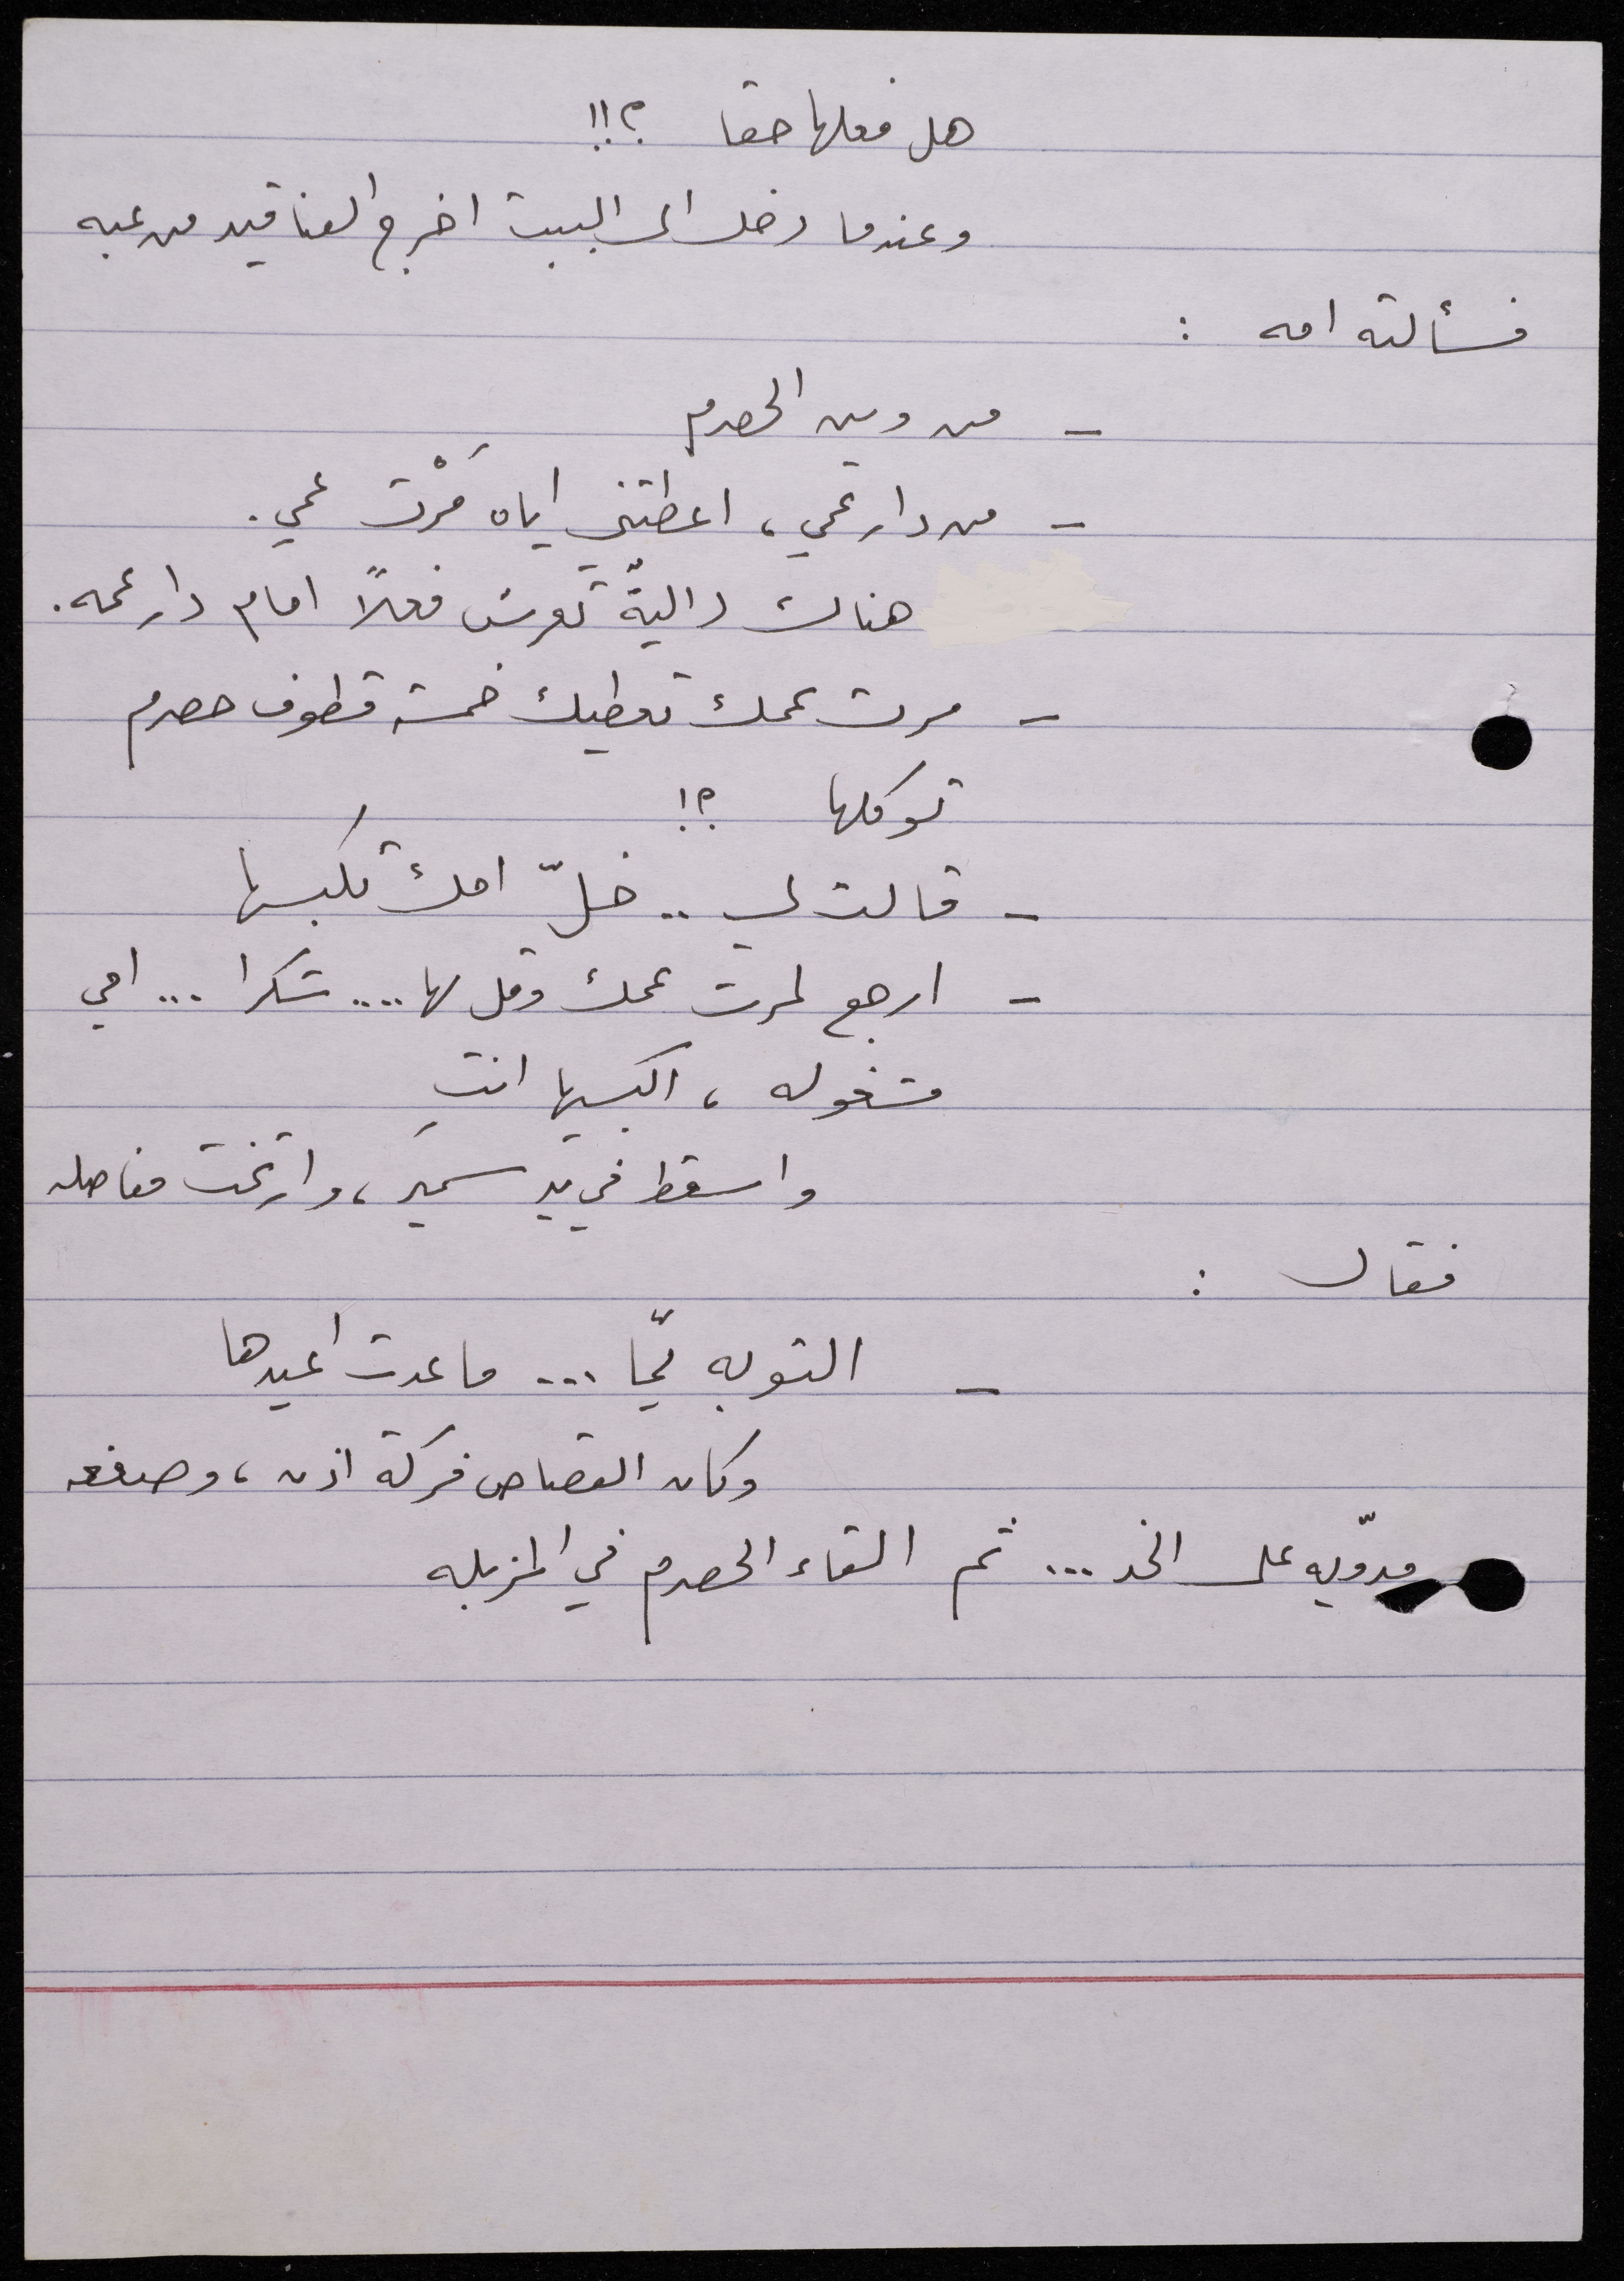 هل فعلها حقا ؟!!
وعندما دخل الى البيت اخرج العناقيد من عبه
فسألته امه :
- من وين الحصرم
- من دار عمي ، اعطتني اياه مَرْت عمي .
هناك داليةّ تعرش فعلاً امام دار عمه .
- مرت عمك تعطيك خمسة قطوف حصرم
توكلها ؟!
- قالت لي .. خلّ امك تكبسها
- ارجع لمرت عمك وقل لها .... شكرا ... امي
مشغوله ، اكبسيها انتِ
واسقط في يد سمير ، وارتخت مفاصله
فقال :
- التوبه يمّا ... ما عدت اعيدها
وكان القصاص فركة اذن ، وصفعه
مدوّيه على الخد ... ثم القاء الحصرم في المزبله